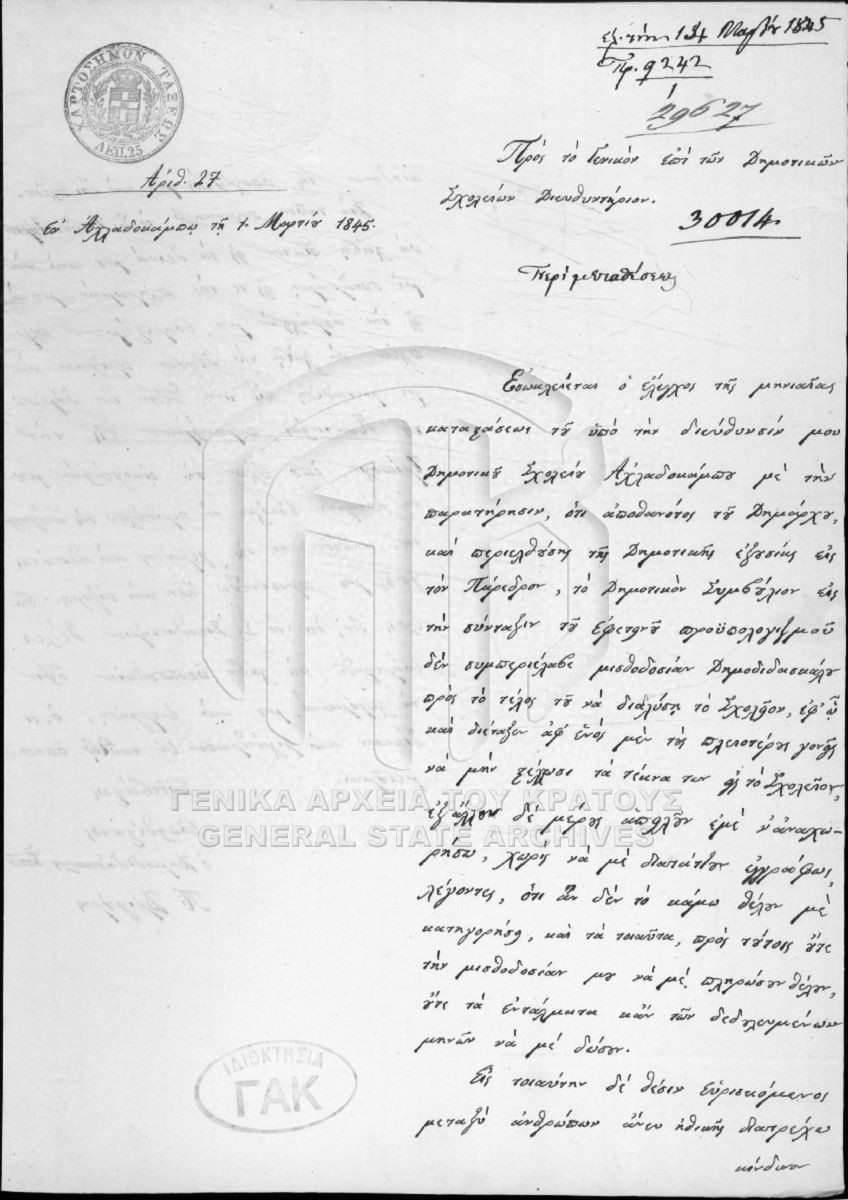 ΧΑΡΤΟΣΗΜΟΝ ΤΑΞΕΩΣ
ΛΕΠ.25
ἐλ. τὴν 14 Μαρτίου 1845
Πρ. 9242
29627
Ἀριθ. 27
Ἐν Ἀχλαδοκάμπῳ τῇ 1 Μαρτίου 1845.
Πρὸς τὸ Γενικὸν ἐπὶ τῶν Δημοτικῶν
Σχολείων Διευθυντήριον.
30014
Περὶ μεταθέσεως
Ἐσωκλείεται ὁ ἔλεγχος τῆς μηνιαίας
καταστάσεως τοῦ ὑπὸ τὴν διεύθυνσίν μου
Δημοτικοῦ Σχολείου Ἀχλαδοκάμπου μὲ τὴν
παρατήρησιν, ὅτι ἀποθανότος τοῦ Δημάρχου,
καὶ περιελθούσης τῆς Δημοτικῆς ἐξουσίας εἰς
τὸν Πάρεδρον, τὸ Δημοτικὸν Συμβούλιον εἰς
τὴν σύνταξιν τοῦ ἐφετεινοῦ προϋπολογισμοῦ
δὲν συμπεριέλαβε μισθοδοσίαν Δημοδιδασκάλου
πρὸς τὸ τέλος τοῦ νὰ διαλύσῃ τὸ Σχολεῖον, ἐφ' ᾧ
καὶ διέταξεν ἀφ' ἑνὸς μὲν τοὺς πλειοτέρους γονεῖς
νὰ μὴν στέλλωσι τὰ τέκνα των εἰς τὸ Σχολεῖον,
ἐξ ἄλλου δὲ μέρους ἀπειλοῦν ἐμὲ ν' ἀναχω-
ρήσω, χωρὶς νὰ μὲ διατάττουν ἐγγράφως,
λέγοντες, ὅτι ἂν δὲν τὸ κάμω θέλουν μὲ
κατηγορήσῃ, καὶ τὰ τοιαῦτα, πρὸς τούτοις οὔτε
τὴν μισθοδοσίαν μου νὰ μὲ πληρώσουν θέλουν,
οὔτε τὰ ἐντάλματα κἂν τῶν δεδουλευμένων
μηνῶν νὰ μὲ δώσουν.
Εἰς τοιαύτην δὲ θέσιν εὑρισκόμενος
μεταξὺ ἀνθρώπων ἄνευ ἠθικῆς διατρέχω
κίνδυνον
ΓΕΝΙΚΑ ΑΡΧΕΙΑ ΤΟΥ ΚΡΑΤΟΥΣ
GENERAL STATE ARCHIVES
ΙΔΙΟΚΤΗΣΙΑ
ΓΑΚ